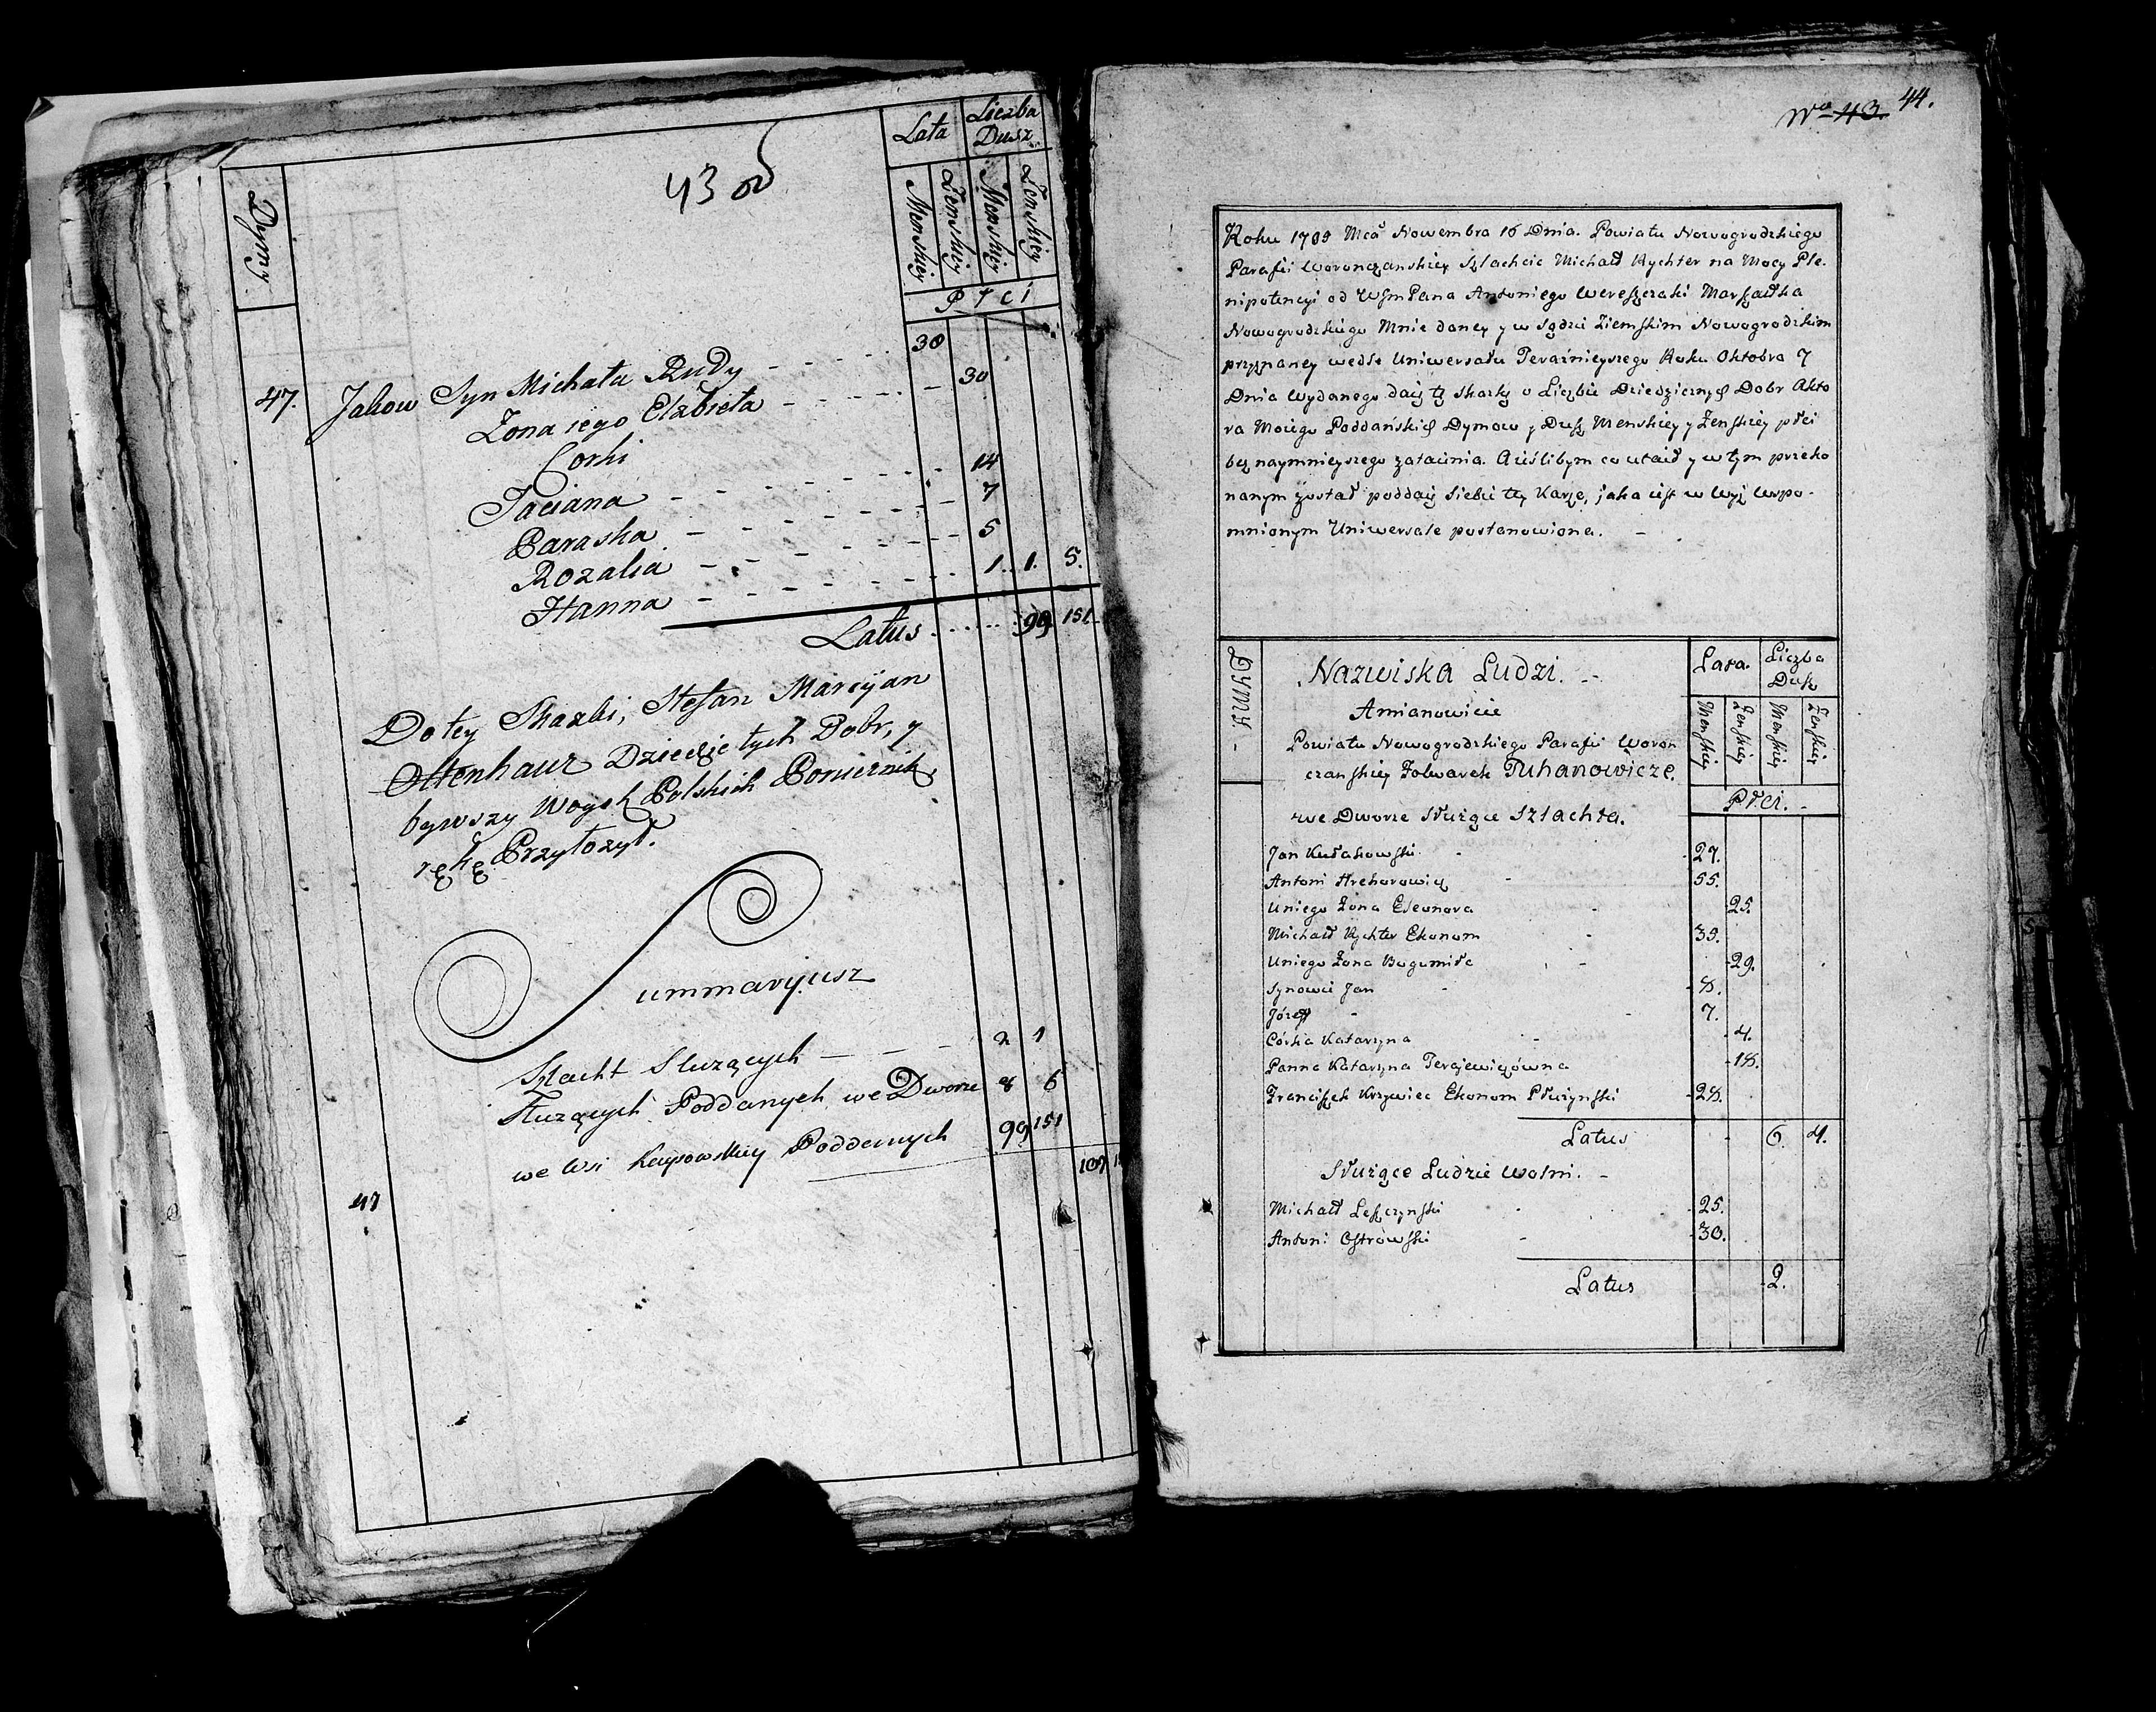 43 об
Dymy
Lata
Liczba Dusz
Menskiey
Zenskiey
Menskiey
Zenskiey
Płci
47. Jakow Syn Michała Rudy - - - - 30
Zona iego Elzbieta - - - - 30
Corki
Taciana - - - - 14
Paraska - - - - 7
Rozalia - - - - 5
Hanna - - - - 1. 1. 5.
Latus . . . . 99 151
Do tey Skazki, Stefan Marcyjan
Ottenhauz Dziedzic tych Dobr, y
bywszy Woysk Polskich Porucznik,
rękę Przyłozył.
Summaryjusz
Szlacht Sluzących - - - 2 1
Sluzących Poddanych we Dworze 8 6
we Wsi Poddanych 99 151
47 109
Nro 43. 44.
Roku 1795 Mca Nowembra 16 Dnia. Powiatu Nowogrodzkiego
Parafii Woronczanskiey Szlachcic Michał Rychter na Mocy Ple-
nipotencyi od WJm Pana Antoniego Wereszczaki Marszałka
Nowogrodzkiego Mnie daney y w Sądzie Ziemskim Nowogrodzkim
przyznaney wedle Uniwersału Teraznieyszego Roku Oktobra 7
Dnia wydanego daię tę skazkę o Liczbie Dziedzicznych Dobr Akto
ra Moiego Poddańskich Dymow y Dusz Menskiey y Zenskiey płci
bez naymnieyszego zataienia. A ieślibym co utaił y w tym przeko
nanym został poddaię siebie tey Karze, jaka iest w wyż wspo-
mnionym Uniwersale postanowiona. -
Dymy.
Nazwiska Ludzi.
Lata.
Liczba Dusz
Amianowicie
Menskiey
Zenskiey
Menskiey
Zenskiey
Powiatu Nowogrodzkiego Parafii Woron
czanskiey Folwarek Tuhanowicze.
Płci.
we Dworze Służące Szlachta.
Jan Kułakowski - 27.
Antoni Hrehorowicz - 55.
Uniego Zona Eleonora - 25.
Michał Rychter Ekonom - 39.
Uniego Zona Bogumiła - 29.
Synowie Jan - 8.
Józeff - 7.
Córka Katarzyna - 4.
Panna Katarzyna Terajewiczówna - 18.
Franciszek Krzywiec Ekonom Płużynski - 28.
Latus - 6. 4.
Służące Ludzie Wolni. -
Michał Leszczynski - 25.
Antoni Ostrowski - 30.
Latus 2.